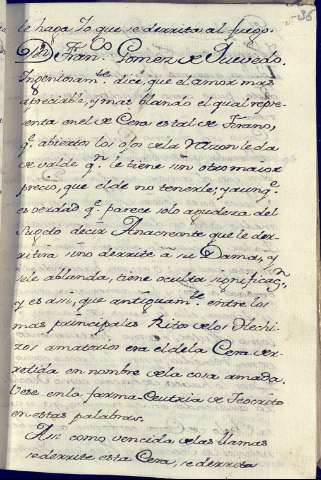 36
le haga lo que se derrita al fuego.
Dn Franco Gomez de Quevedo.
Ingeniosamte dice, que el amor mas
apreciable, y mas blando el qual repre-
senta en el de Cera es tal de tirano,
qe abiertos los ojos de la razon le da
de valde qn le tiene sin otro maior
precio, que el de no tenerle; y aunqe
es verdad qe parece solo agudeza del
sugeto decir Anacreonte que le der-
ritira sino derrite a su Dama, y
si le ablanda, tiene oculta significasn
y es asi, que antiguamte entre los
mas principales Ritos de los Hechi-
zos amatorios era el de la Cera der-
retida en nombre de la cosa amada.
Vese en la farma Ceutria de Teocrito
en estas palabras.
Asi como vencida de las llamas
se derrite esta Cera, se derrita